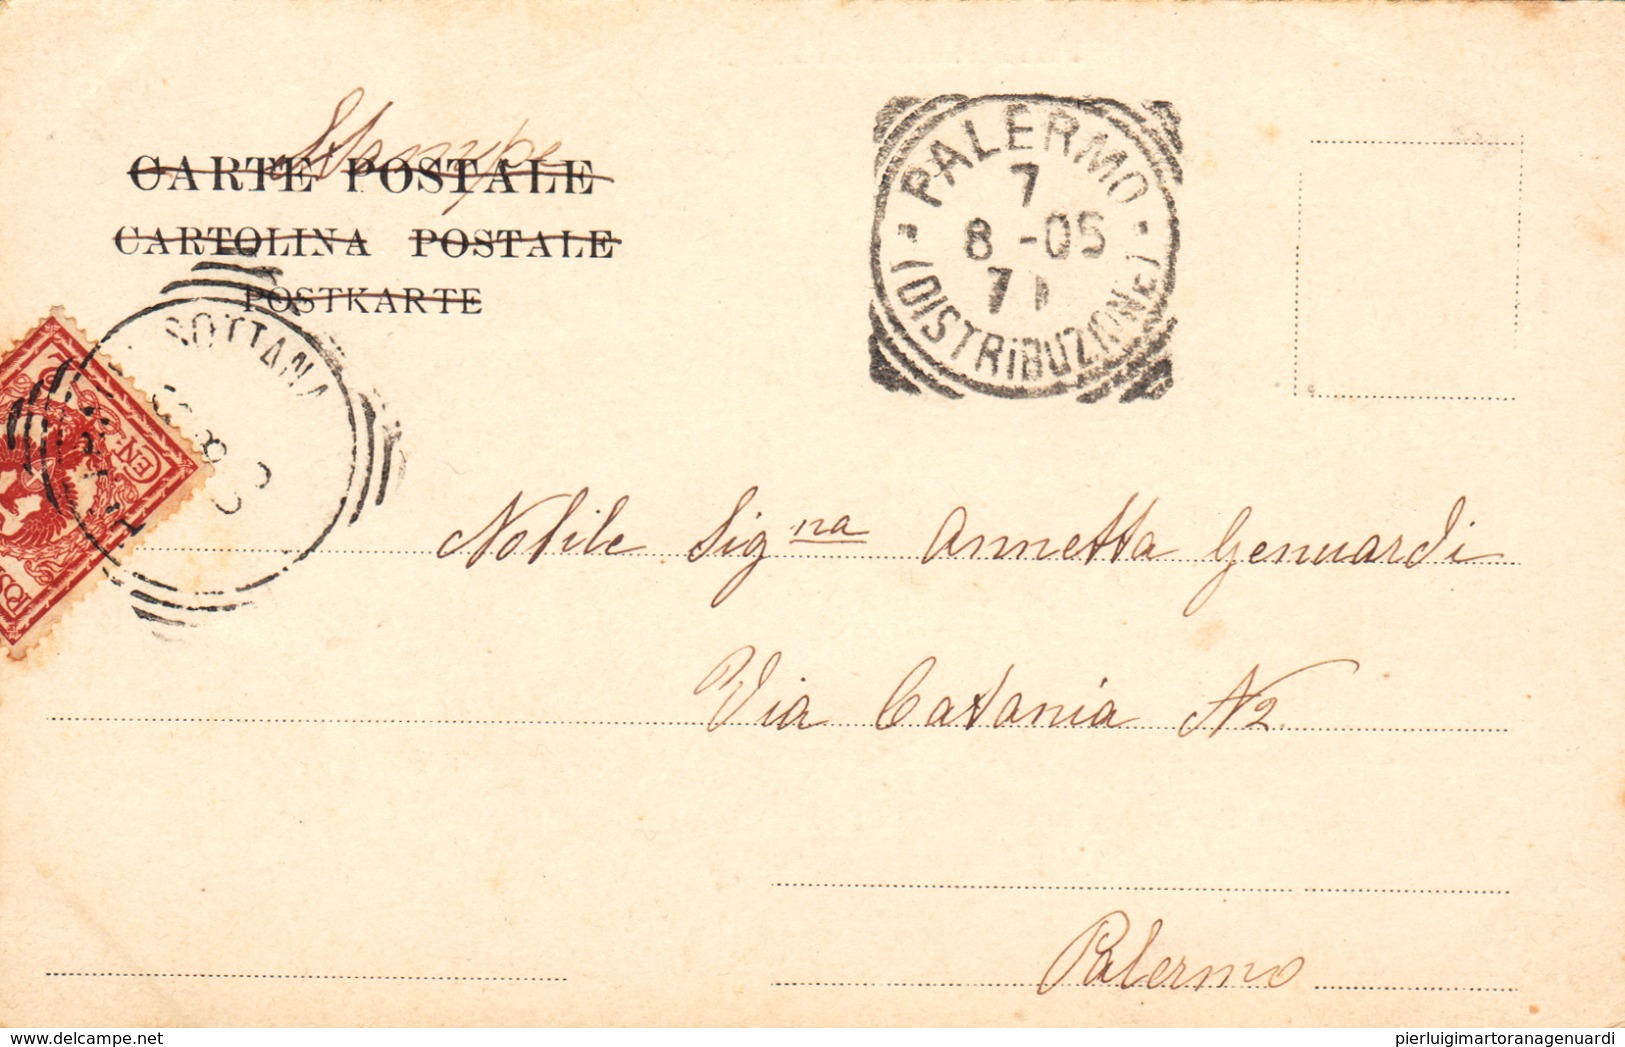 Stampe
CARTE POSTALE
CARTOLINA POSTALE
POSTKARTE
PALERMO
7
8 -05
7
(DISTRIBUZIONE)
SOTTANA
CEN
POS
Nobile Sig.na Annetta Genuardi
Via Catania N2.
Palermo
delcampe.net
pierluigimartoranagenuardi